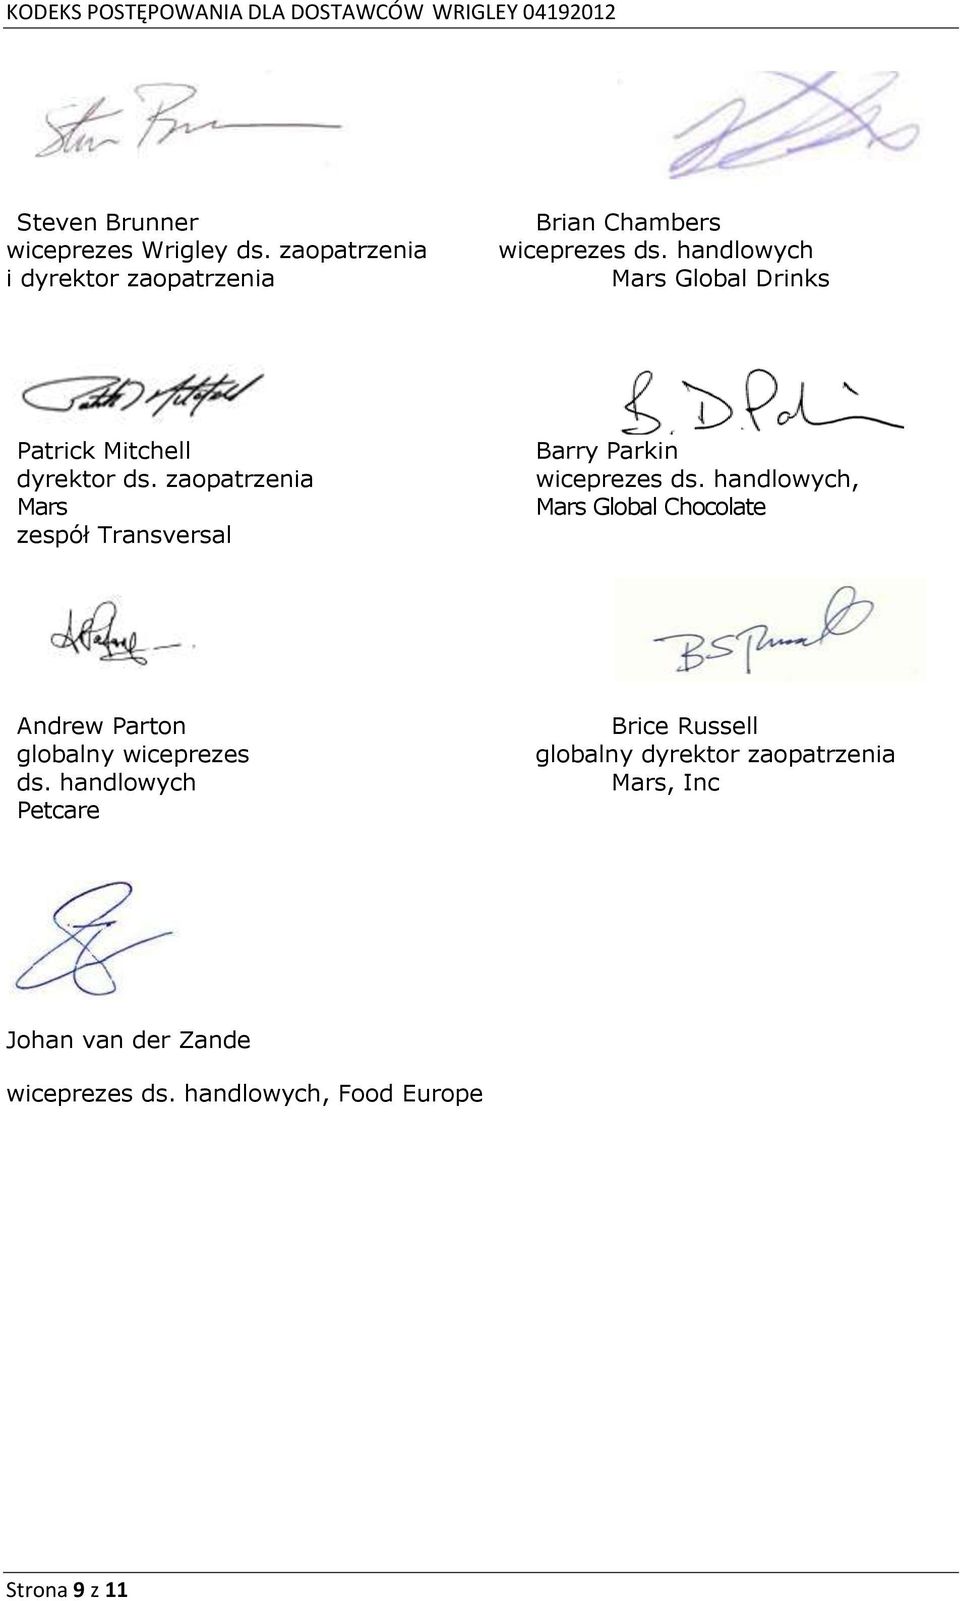 KODEKS POSTĘPOWANIA DLA DOSTAWCÓW WRIGLEY 04192012
Steven Brunner
wiceprezes Wrigley ds. zaopatrzenia
i dyrektor zaopatrzenia
Brian Chambers
wiceprezes ds. handlowych
Mars Global Drinks
Patrick Mitchell
dyrektor ds. zaopatrzenia
Mars
zespół Transversal
B. D. Parkin
Barry Parkin
wiceprezes ds. handlowych,
Mars Global Chocolate
Andrew Parton
globalny wiceprezes
ds. handlowych
Petcare
Brice Russell
globalny dyrektor zaopatrzenia
Mars, Inc
Johan van der Zande
wiceprezes ds. handlowych, Food Europe
Strona 9 z 11